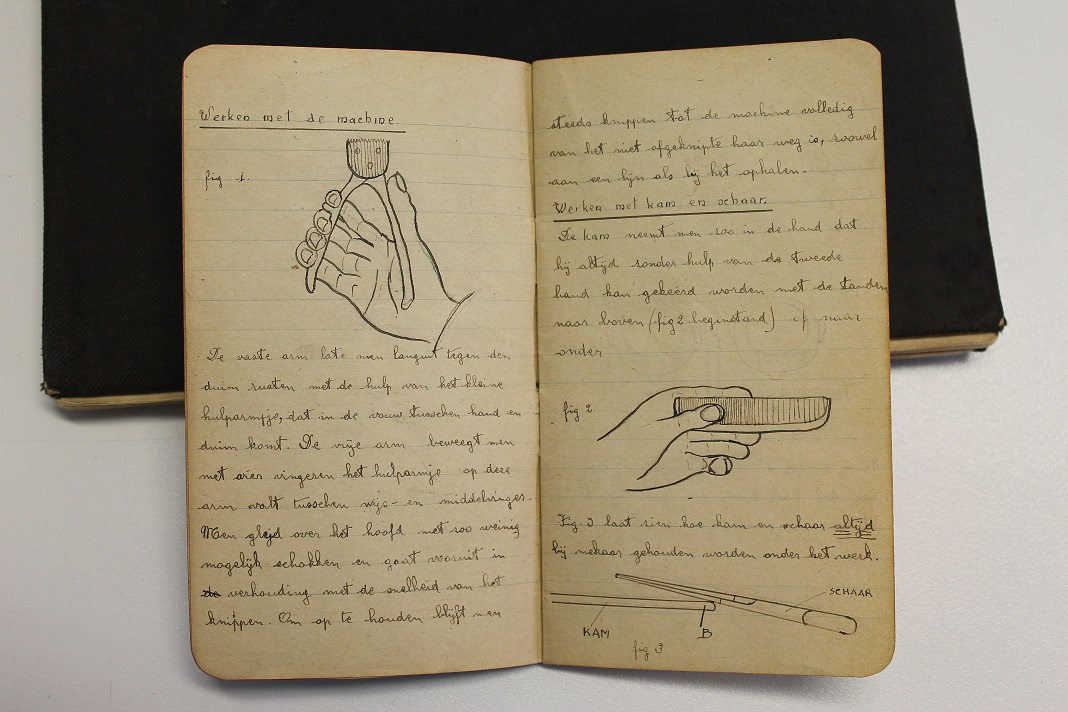 Werken met de machine.
fig 1.
De vaste arm late men languit tegen den
duim rusten met de hulp van het kleine
hulparmpje, dat in de vouw tusschen hand en
duim komt. De vrije arm beweegt men
met vier vingeren het hulparmje op deze
arm valt tusschen wijs- en middelvinger.
Men glejd over het hoofd met zoo weinig
mogelijk schokken en gaat vooruit in
de verhouding met de snelheid van het
knippen. Om op te houden blijft men
steeds knippen tot de machine volledig
van het niet afgeknipte haar weg is, zoowel
aan een lijn als bij het ophalen.
Werken met kam en schaar.
De kam neemt men zoo in de hand dat
hij altijd zonder hulp van de tweede
hand kan gekeerd worden met de tanden
naar boven (fig 2 beginstand) of naar
onder
fig 2
Fig. 3 laat zien hoe kam en schaar altijd
bij mekaar gehouden worden onder het werk.
SCHAAR
KAM
B
fig 3